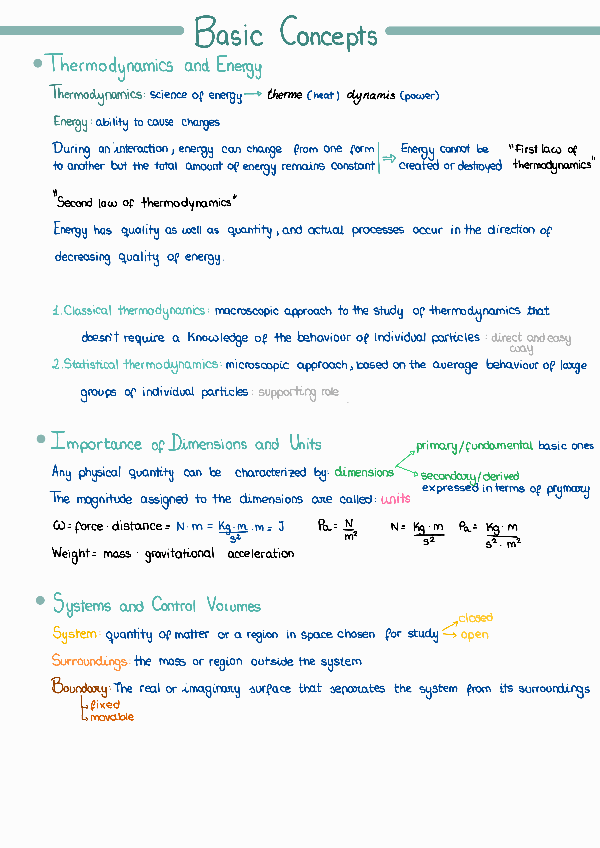 Basic Concepts
Thermodynamics and Energy
Thermodynamics: science of energy → therme (heat) dynamis (power)
Energy: ability to cause changes
During an interaction, energy can change from one form
to another but the total amount of energy remains constant ⇒ Energy cannot be created or destroyed "First law of thermodynamics"
"Second law of thermodynamics"
Energy has quality as well as quantity, and actual processes occur in the direction of
decreasing quality of energy.
1. Classical thermodynamics: macroscopic approach to the study of thermodynamics that
doesn't require a knowledge of the behaviour of individual particles : direct and easy way
2. Statistical thermodynamics: microscopic approach, based on the average behaviour of large
groups of individual particles: supporting role
Importance of Dimensions and Units
primary/fundamental basic ones
Any physical quantity can be characterized by: dimensions
secondary/derived
expressed in terms of prymary
The magnitude assigned to the dimensions are called: units
W = force · distance = N·m = Kg·m/s² · m = J Pa = N/m² N = Kg·m/s² Pa = Kg·m/s²·m²
Weight = mass · gravitational acceleration
Systems and Control Volumes
closed
System: quantity of matter or a region in space chosen for study → open
Surroundings: the mass or region outside the system
Boundary: The real or imaginary surface that separates the system from its surroundings
fixed
movable